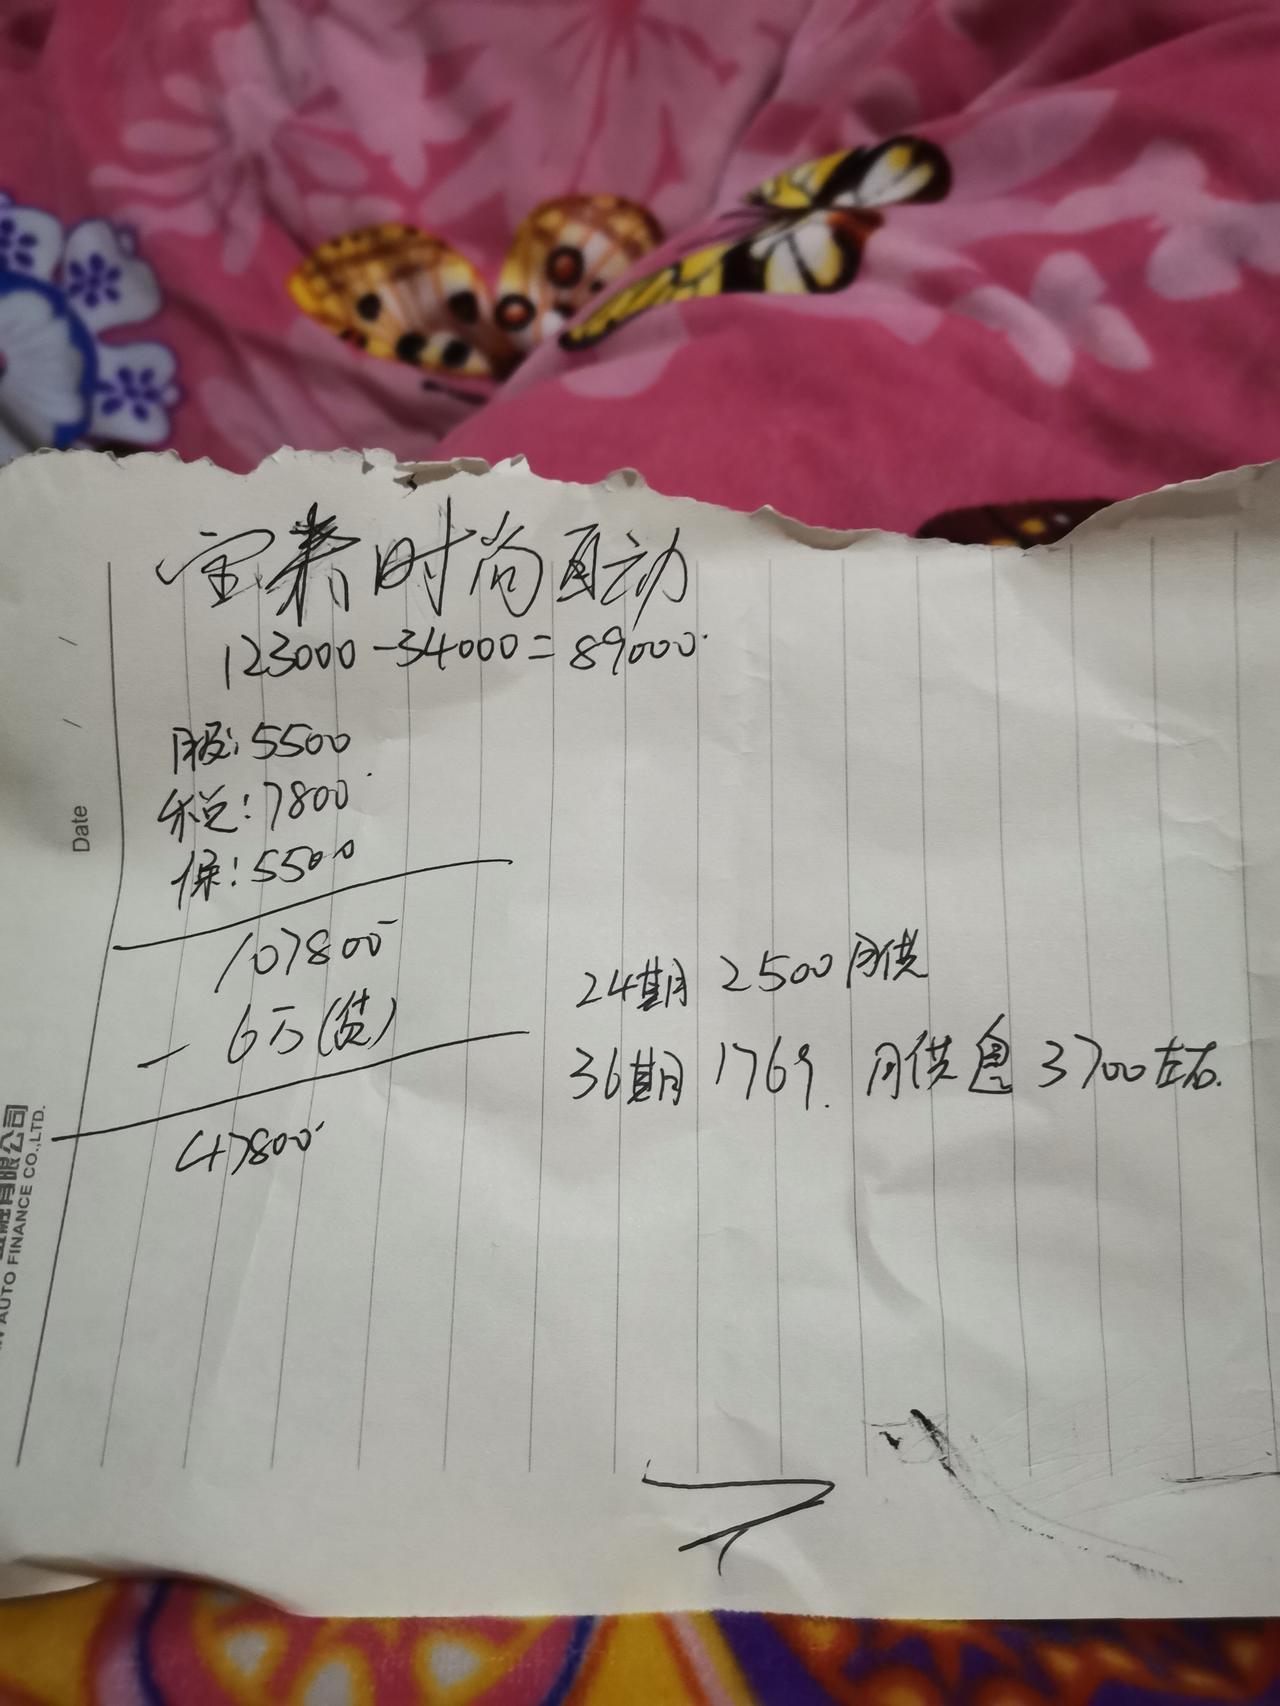 宝来时尚互动
123000-34000=89000
服:5500
税:7800
保:5500
107800
- 6万(贷)
47800
24期 2500月供
36期 1769. 月供息 3700左右.
Date
金融有限公司
AUTO FINANCE CO.,LTD.